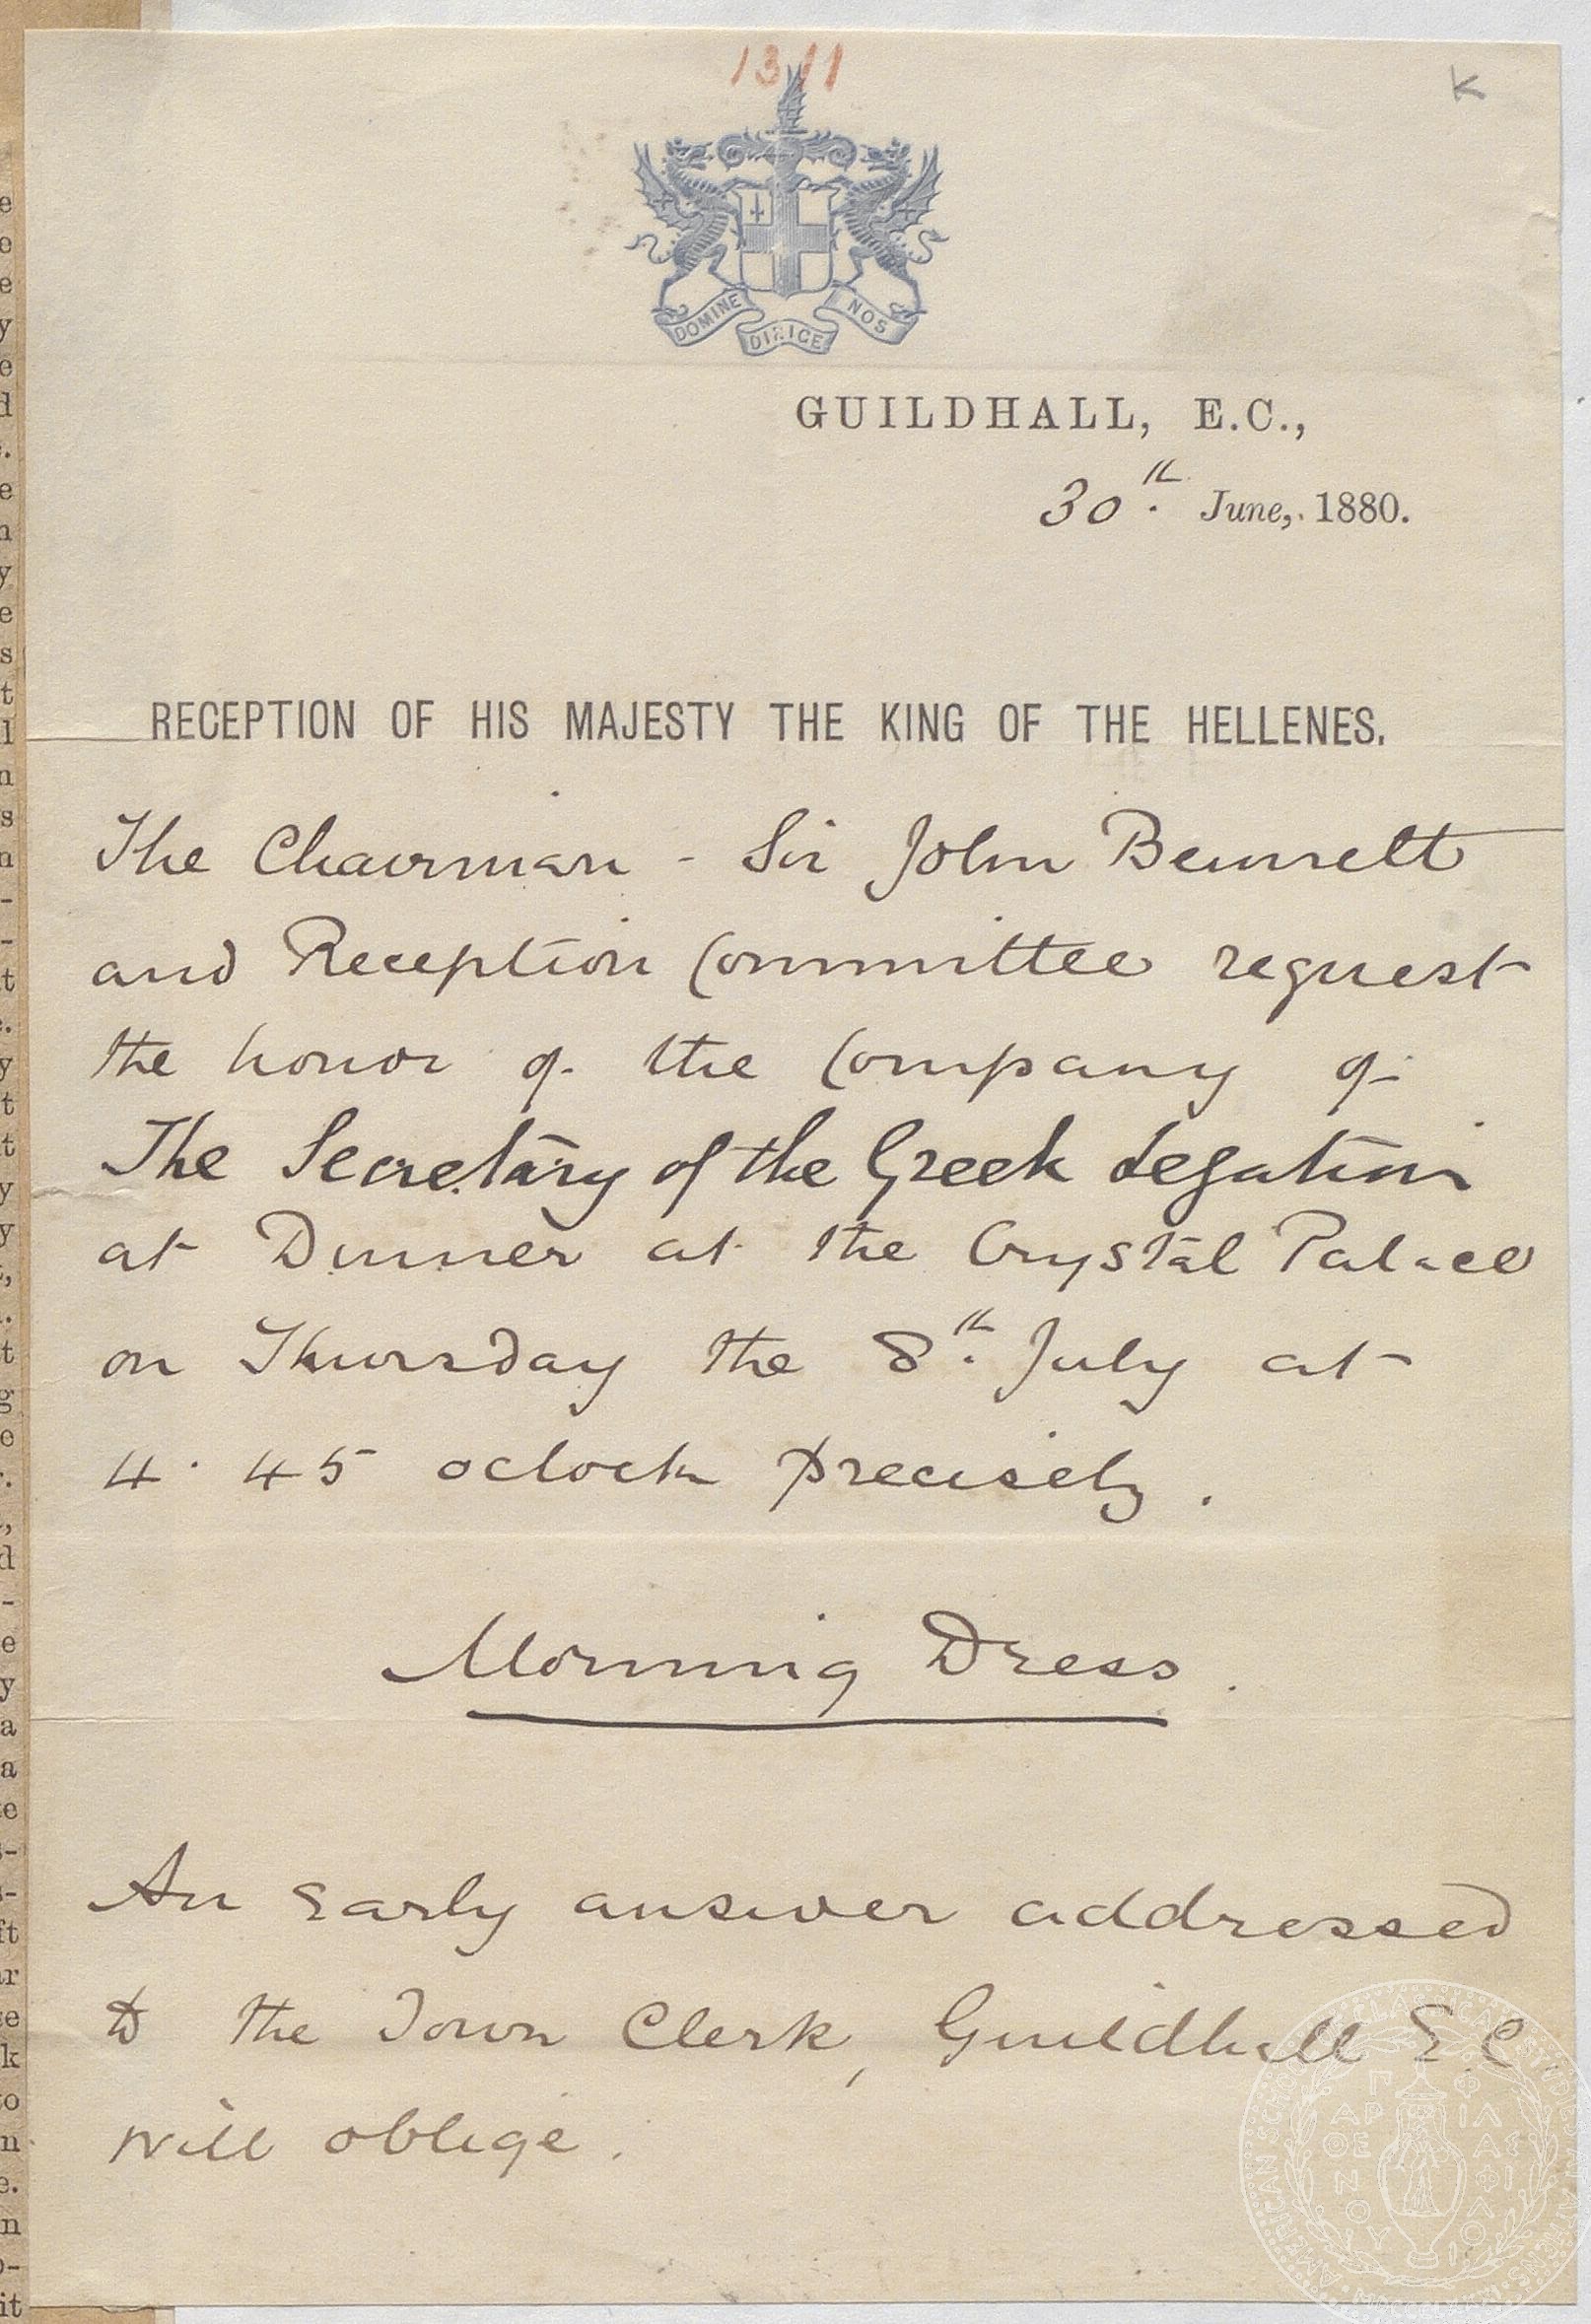 1311
K
DOMINE DIRIGE NOS
GUILDHALL, E.C.,
30th. June, 1880.
RECEPTION OF HIS MAJESTY THE KING OF THE HELLENES.
The Chairman - Sir John Bennett
and Reception Committee request
the honor of the Company of
The Secretary of the Greek Legation
at Dinner at the Crystal Palace
on Thursday the 8th. July at
4.45 oclock precisely.
Morning Dress.
An early answer addressed
to the Town Clerk, Guildhall E C
will oblige.